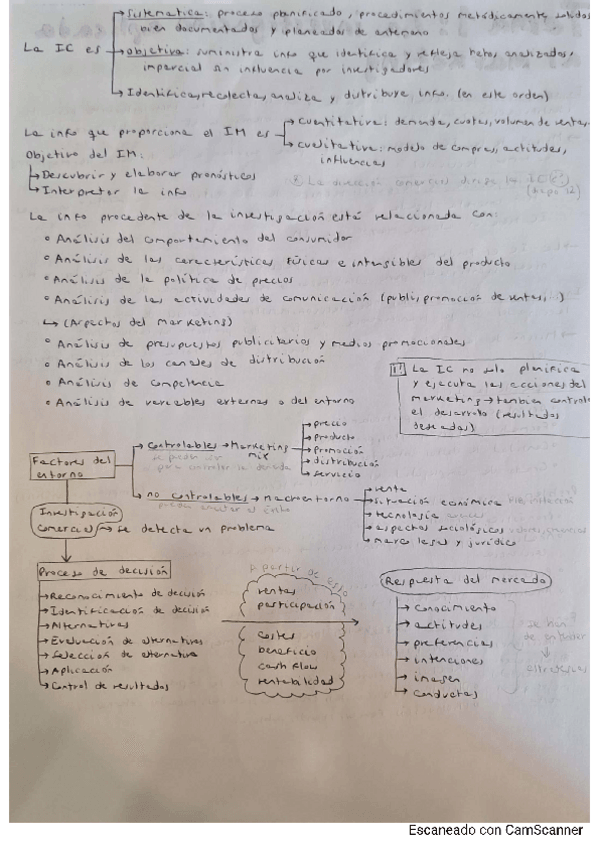 Sistematica: proceso planificado, procedimientos metódicamente solidos
bien documentados y planeados de antemano
La IC es → objetiva: suministra info que identifica y refleja retos analizados,
imparcial sin influencia por investigadores
Identifica, recolecta, analiza y distribuye info. (en este orden)
La info que proporciona el IM es → cuantitativa: demanda, cuotas, volumen de ventas
cualitativa: modelo de compras, actitudes,
influencias
Objetivo del IM:
Descubrir y elaborar pronósticos
Interpretar la info
La dirección comercial dirige la IC
La info procedente de la investigación está relacionada con:
• Análisis del comportamiento del consumidor
• Análisis de las características físicas e intangibles del producto
• Análisis de la política de precios
• Análisis de las actividades de comunicación (publi, promoción de ventas, )
↳ (Aspectos del marketing)
• Análisis de presupuestos publicitarios y medios promocionales
• Análisis de los canales de distribución
• Análisis de competencia
• Análisis de variables externas o del entorno
La IC no solo planifica
y ejecuta las acciones del
marketing → tambien controla
el desarrollo (resultados
deseados)
Factores del
entorno
controlables → Marketing
mix
se pueden
para controlar la demanda
precio
producto
promoción
distribución
servicio
no controlables → macroentorno
venta
situación económica
tecnología
aspectos sociológicos
marco legal y jurídico
Investigación
comercial → se detecta un problema
Proceso de decisión
Reconocimiento de decisión
Identificación de decisión
Alternativas
Evaluación de alternativas
Selección de alternativa
Aplicación
Control de resultados
A partir de esto
ventas
participación
costes
beneficio
cash flow
rentabilidad
Respuesta del mercado
conocimiento
actitudes
preferencias
intenciones
imagen
conductas
se han
de entender
Escaneado con CamScanner